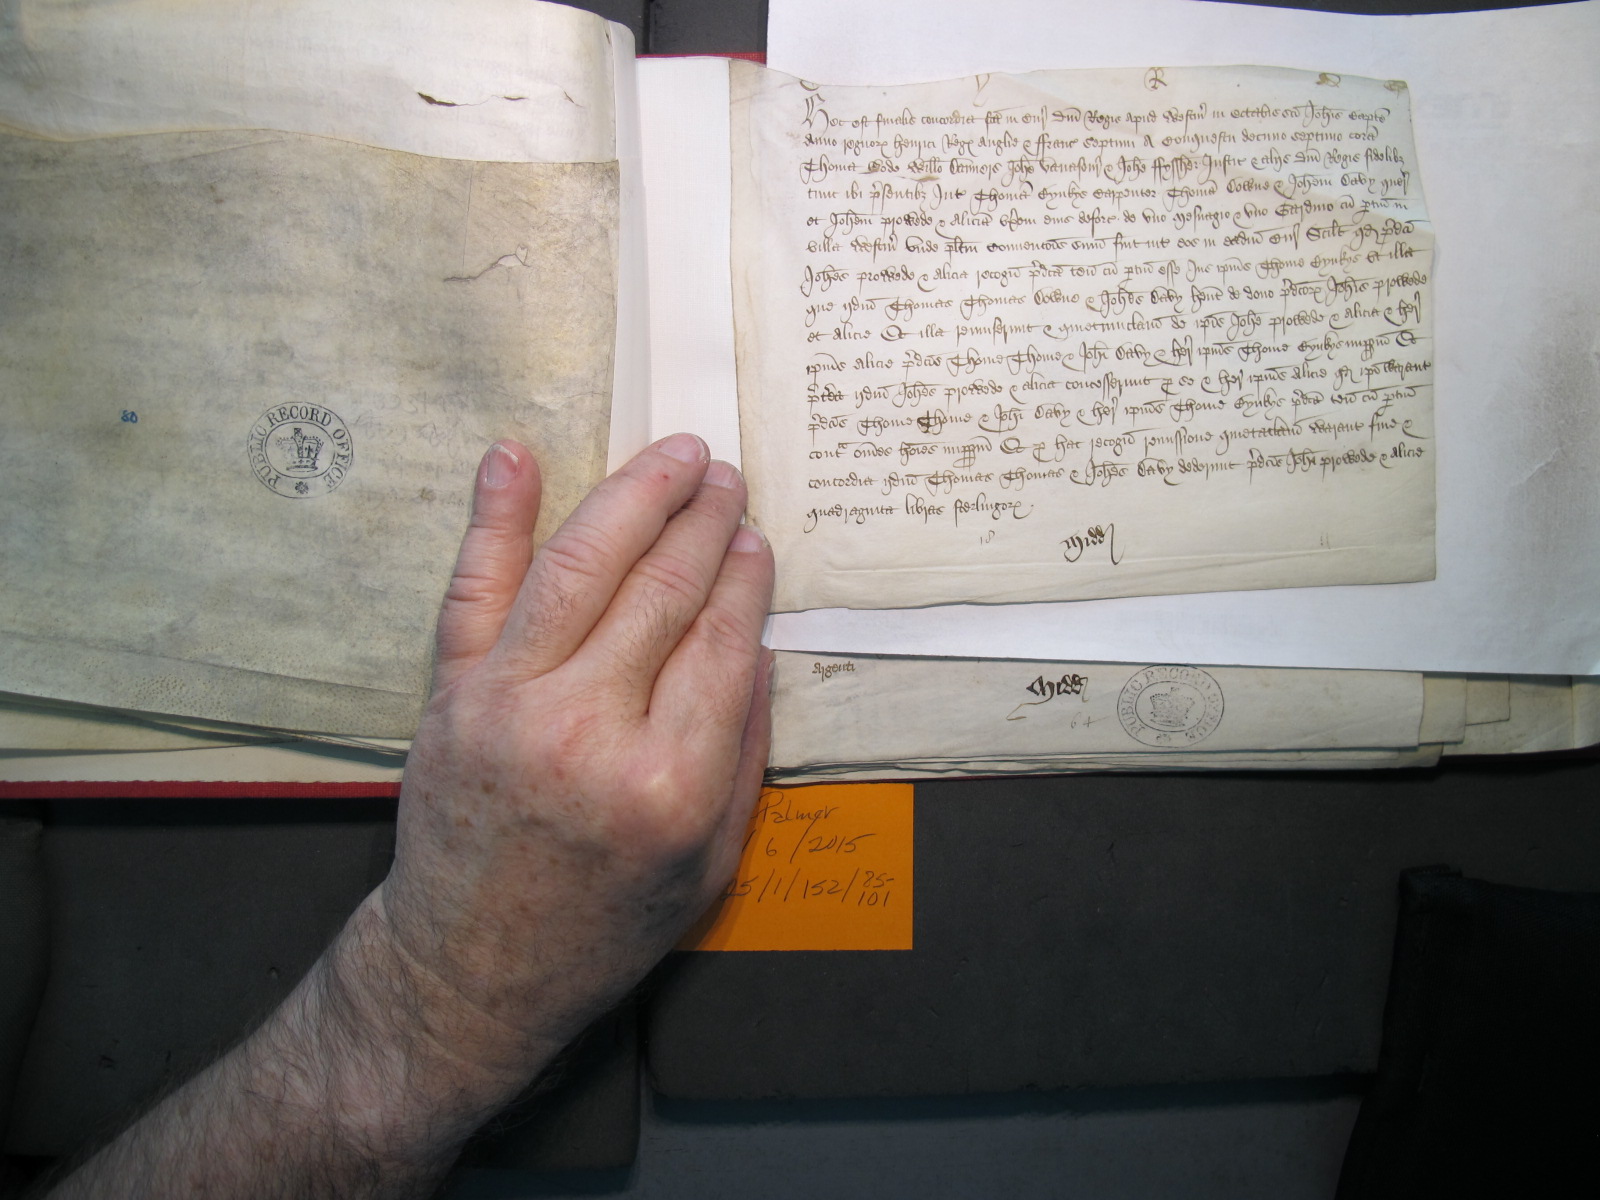 Hec est finalis concordia fca in Cur Dni Regis apud Westm in Octabis sci Johis Bapte
anno regnor Henrici Reg Anglie & ffranc septimi A Conquestu decimo septimo cora
Thoma Wode Willo Danvers Johe Vavasour & Johe ffyssher Justic & alijs Dni Regis fidelibz
tunc ibi psentibz Int Thoma Eynkys Carpenter Thoma & Johem Davy quer
et Johem prowede & Alicia vxem eius deforc de vno mesuagio & vno Gardino cu ptin in
villa Westm vnde plitm convencois sum fuit int eos in eadm Cur Scilt qd pdci
Johes prowede & Alicia recogn pdca ten cu ptin esse Jus ipius Thome Eynkys vt illa
que ijdm Thomas Thomas & Johes Davy hent de dono pdcor Johis prowede
et Alicie Et illa remiserunt & quietumclam de ipis Johe prowede & Alicia & her
ipius Alicie pdcis Thome Thome & Johi Davy & her ipius Thome Eynkys imppm Et
ptea ijdm Johes prowede & Alicia concesserunt p se & her ipius Alicie qd ipi warant
pdcis Thome Thome & Johi Davy & her ipius Thome Eynkys pdca ten cu ptin
cont omes hoies imppm Et p hac recogn remissione quietaclam warant fine &
concordia ijdm Thomas Thomas & Johes Davy dederunt pdcis Johi prowede & Alicie
quadraginta libras sterlingor
Midd
80
PUBLIC RECORD OFFICE
Argenti
Midd
64
PUBLIC RECORD OFFICE
Palmer
/6/2015
25/1/152/85-
101